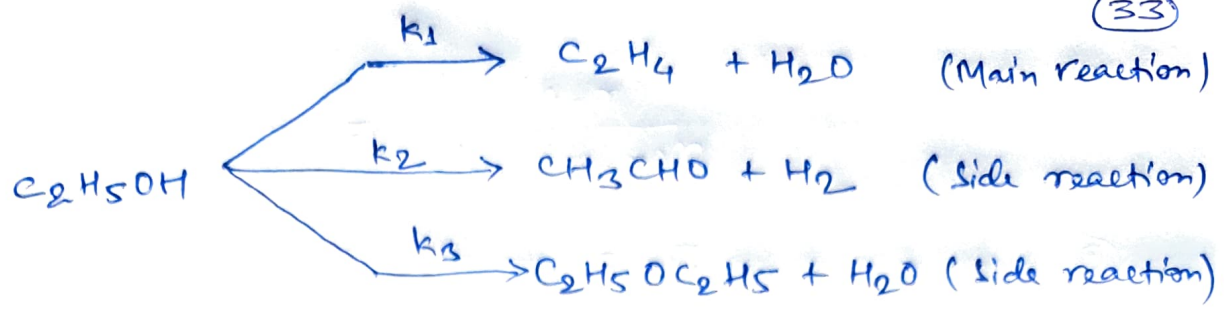 (33)
k1
C2H4 + H2O (Main reaction)
k2
C2H5OH CH3CHO + H2 (Side reaction)
k3
C2H5OC2H5 + H2O (Side reaction)